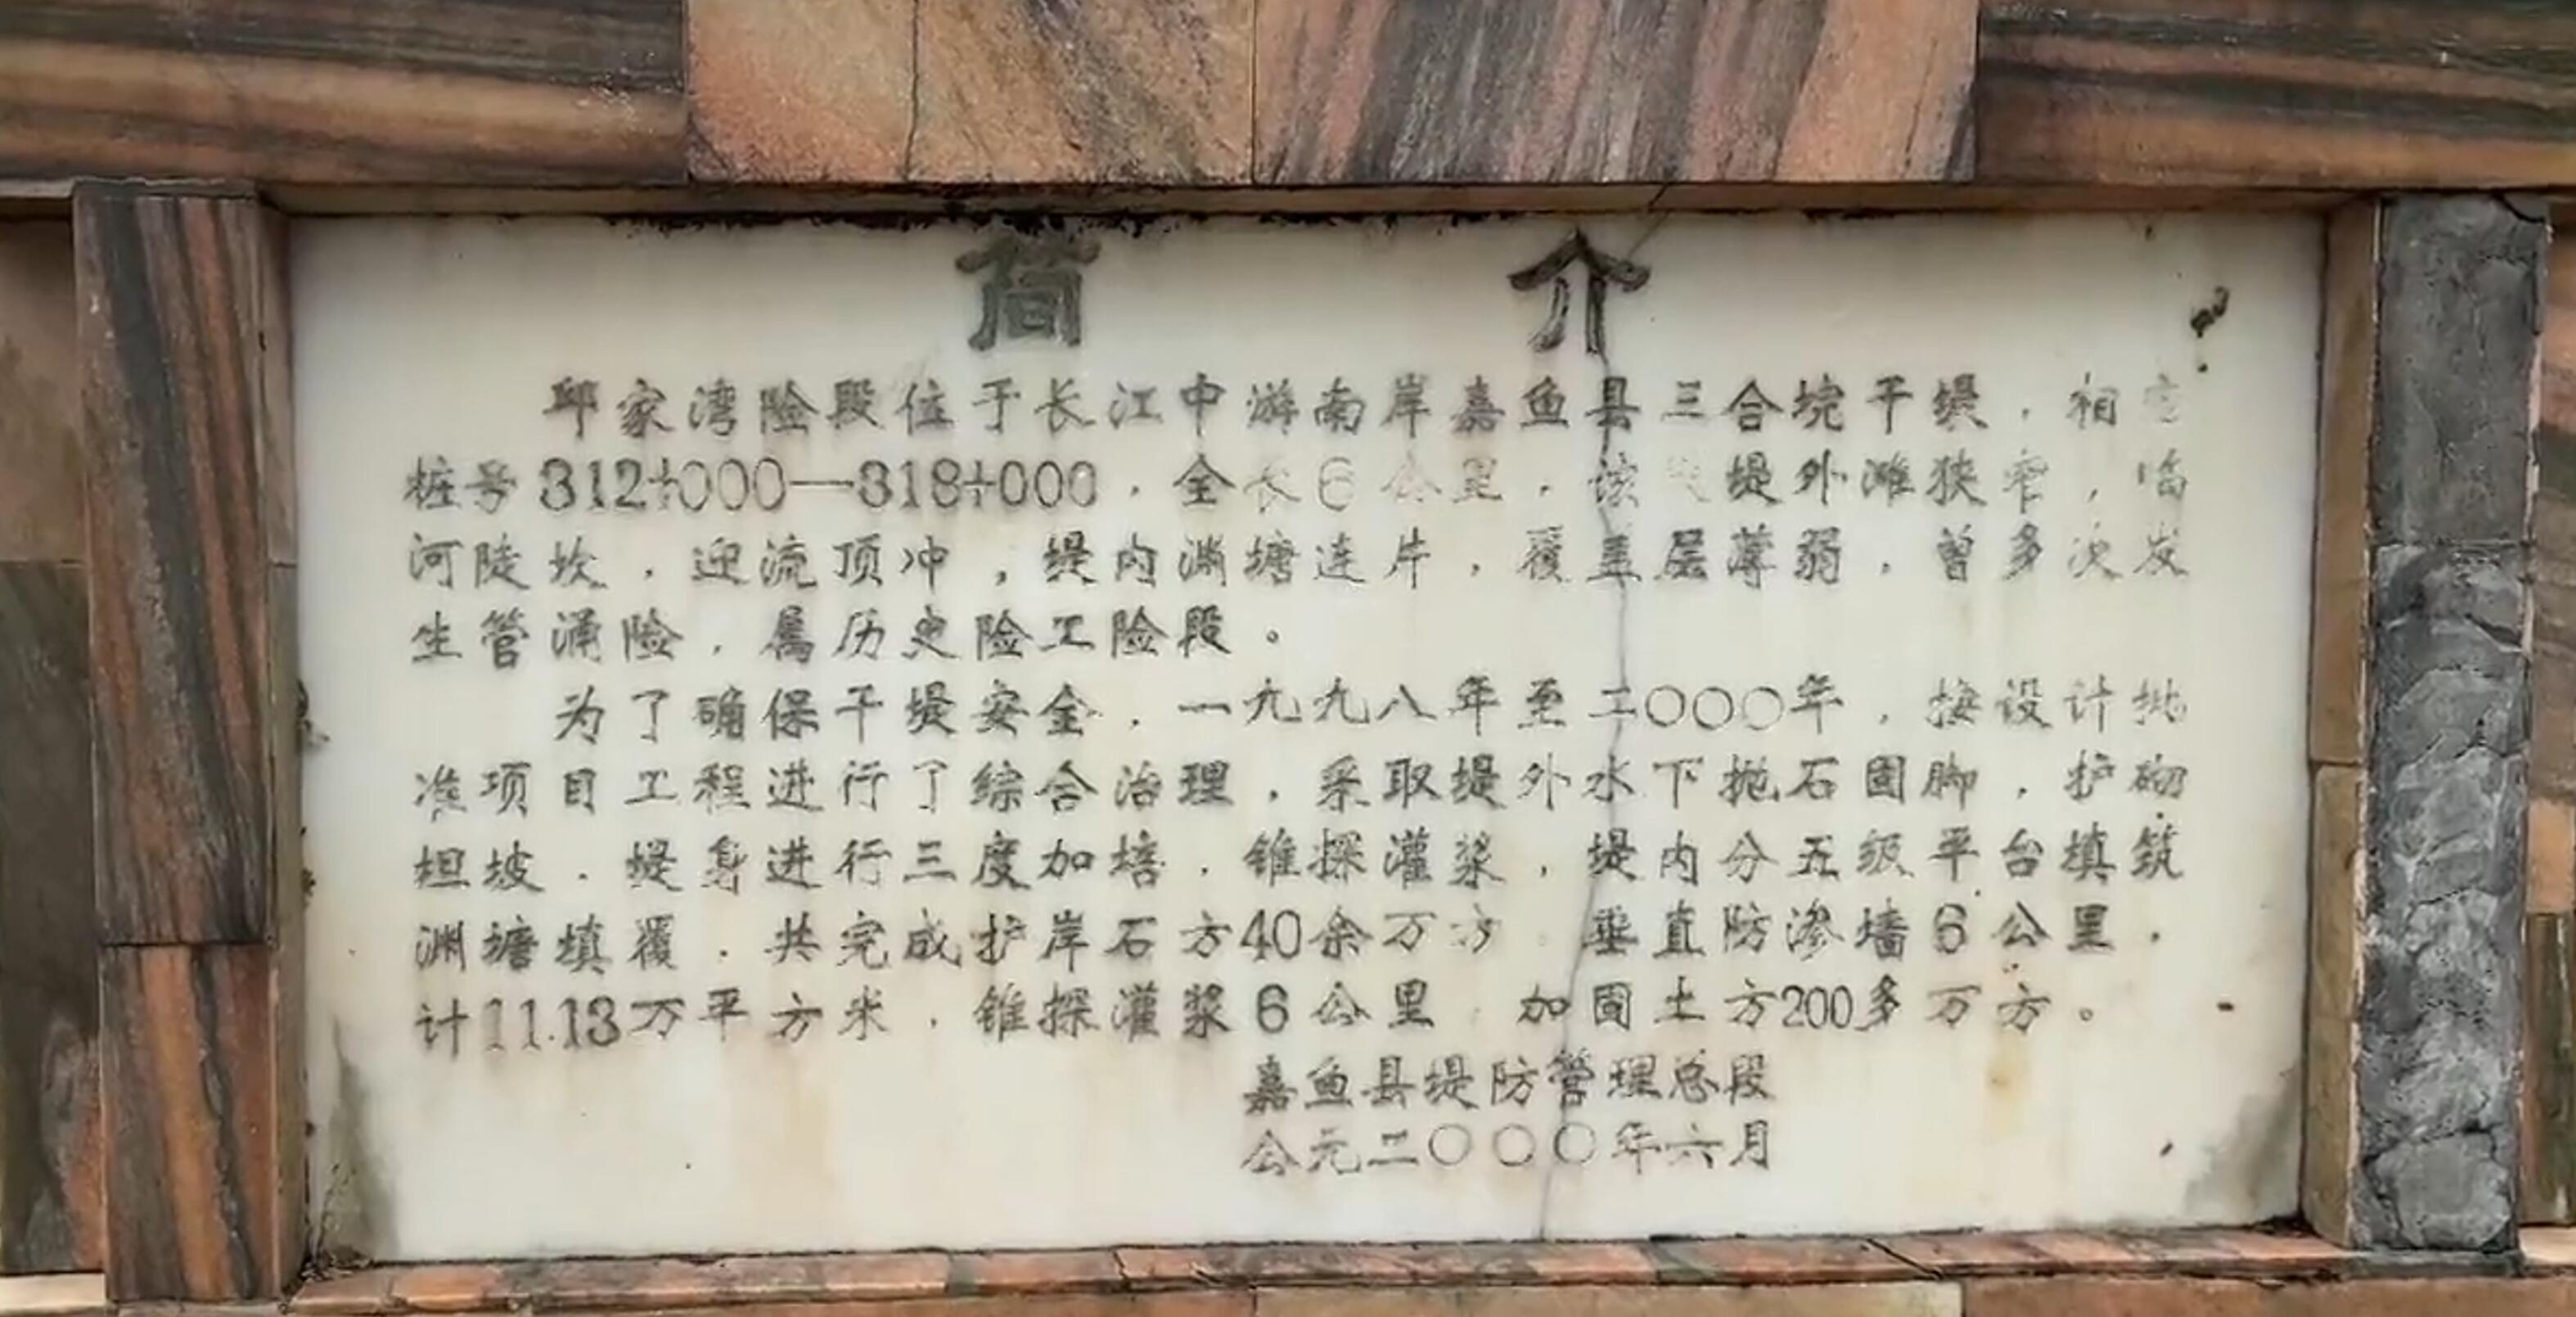 简 介
邱家湾险段位于长江中游南岸嘉鱼县三合垸干堤，相应
桩号312+000—318+000，全长6公里，该堤外滩狭窄，临
河陡坎，迎流顶冲，堤内渊塘连片，覆盖层薄弱，曾多次发
生管涌险，属历史险工险段。
为了确保干堤安全，一九九八年至二〇〇〇年，按设计批
准项目工程进行了综合治理，采取堤外水下抛石固脚，护砌
坦坡，堤身进行三度加培，锥探灌浆，堤内分五级平台填筑
渊塘填覆，共完成护岸石方40余万方 垂直防渗墙6公里，
计11.13万平方米，锥探灌浆6公里 加固土方200多万方。
嘉鱼县堤防管理总段
公元二〇〇〇年六月